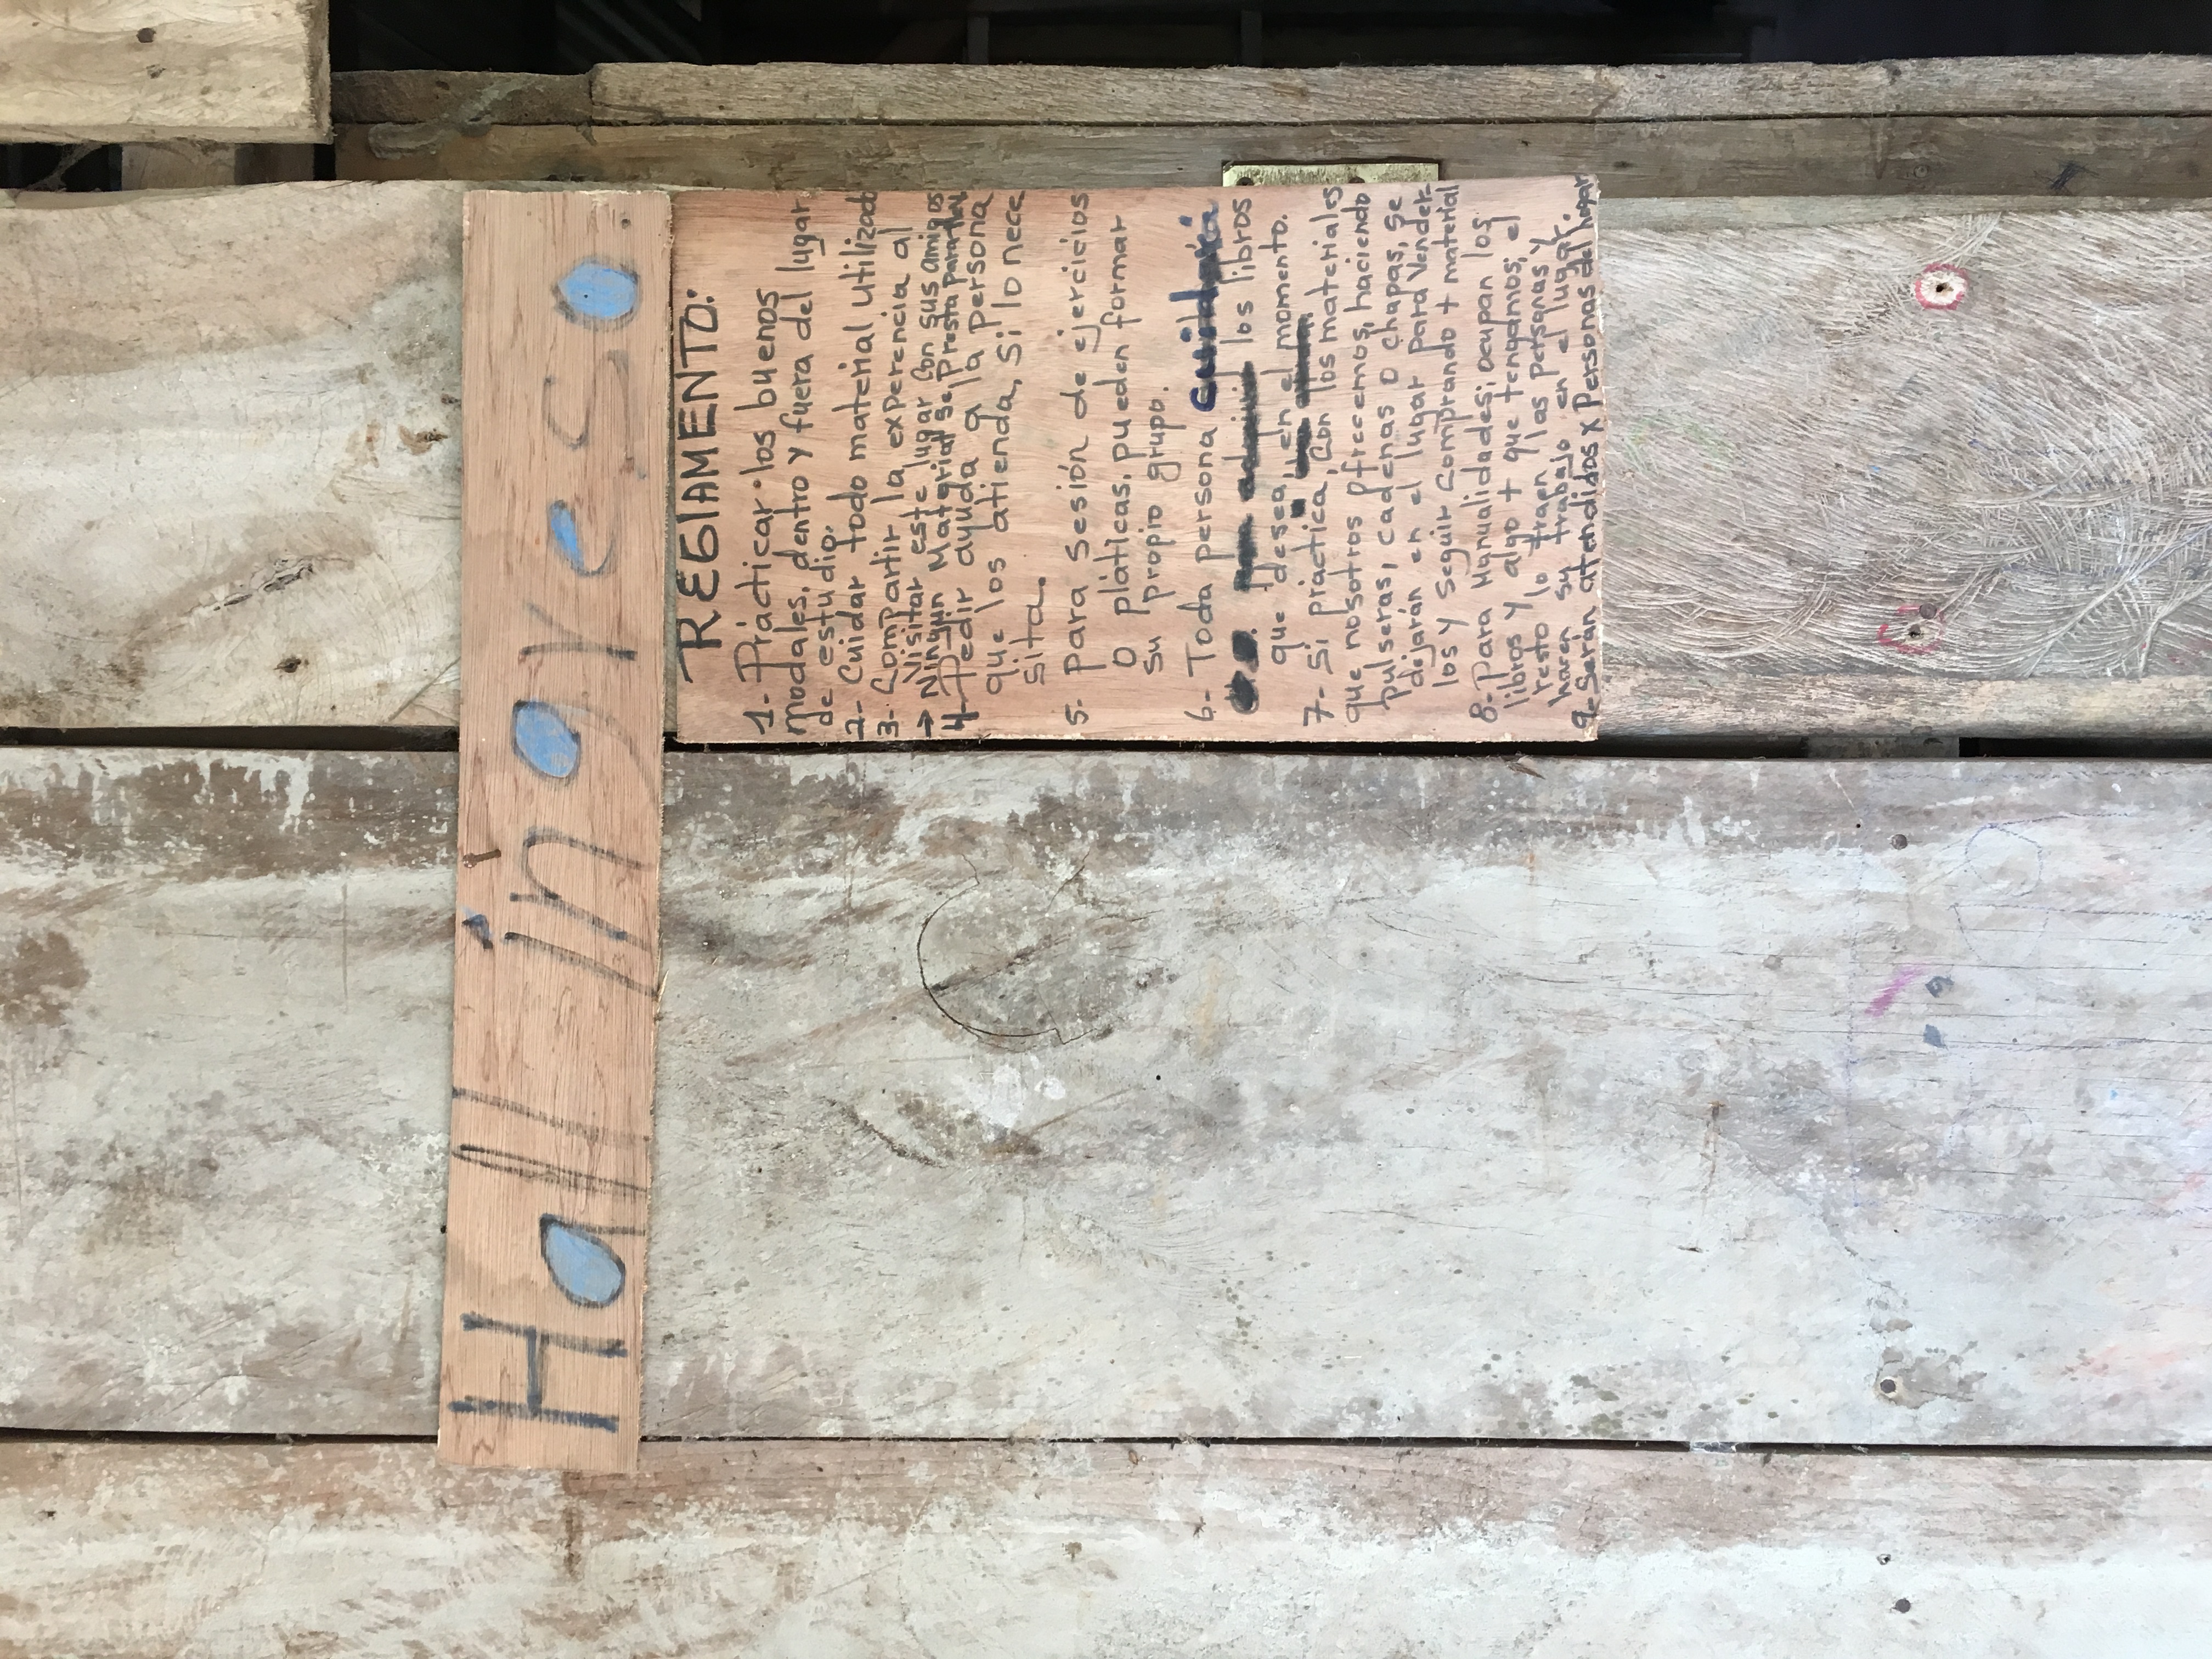 Hall ingreso
REGLAMENTO:
1- Prácticar los buenos
modales, dentro y fuera del lugar
de estudio.
2- Cuidar todo material utilizado
3- Compartir la experencia al
visitar este lugar con sus amigos
→ Ningún Material se Presta para llevar
4- Pedir ayuda a la persona
que los atienda, si lo nece
sita.
5- para sesión de ejercicios
o pláticas, pueden formar
su propio grupo.
6- Toda persona cuidará
los libros
que desea, en el momento.
7- Si práctica, con los materiales
que nosotros ofrecemos, haciendo
pulseras, cadenas o chapas, se
dejarán en el lugar para vender-
los y seguir comprando + material
8- Para Manualidades; ocupan los
libros y algo + que tengamos; el
resto lo traen las personas y
harén su trabajo en el lugar.
9- Serán atendidos x Personas del hogar